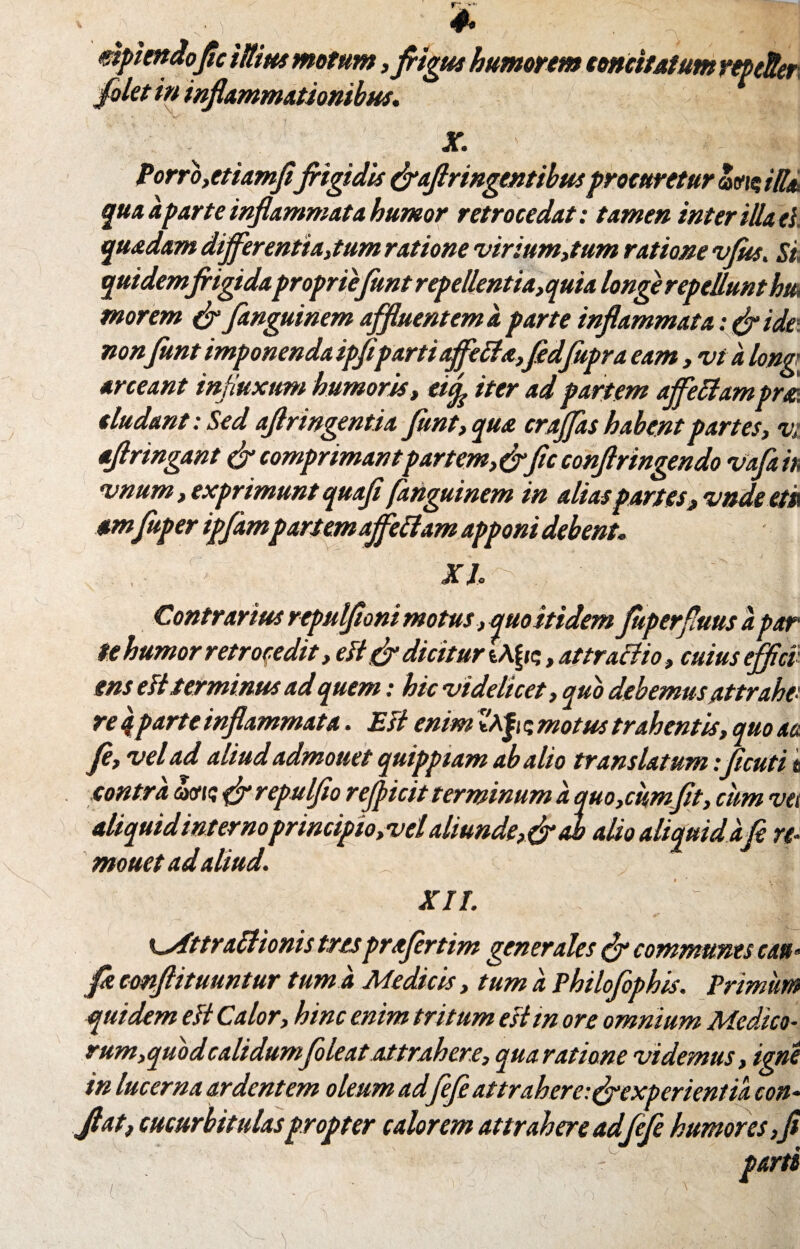 4.
cipiendo ſic illius motum, frigus humorem concitatum repeller
ſolet in inflammationibus.
X.
Porrò, etiamſi frigidis & aſtringentibus procuretur ἆσις illa
qua à parte inflammata humor retrocedat: tamen inter illa eſ
quædam differentia, tum ratione virium, tum ratione vſus. Si
quidem frigida propriè ſunt repellentia, quia longè repellunt hu
morem & ſanguinem affluentem à parte inflammata: & ide
non ſunt imponenda ipſi parti affectæ, ſed ſupra eam, vt à long
arceant influxum humoris, eiq́ iter ad partem affectam præ
cludant: Sed aſtringentia ſunt, quæ craſſas habent partes, v
aſtringant & comprimant partem, & ſic conſtringendo vaſa in
vnum, exprimunt quaſi ſanguinem in alias partes, vnde eti
am ſuper ipſam partem affectam apponi debent.
XI.
Contrarius repulſioni motus, quo itidem ſuperfluus à par
te humor retrocedit, eſt & dicitur ἕλξις, attractio, cuius effici
ens eſt terminus ad quem: hic videlicet, quò debemus attrahe
re à parte inflammata. Eſt enim ἕλξις motus trahentis, quo ad
ſe, vel ad aliud admouet quippiam ab alio translatum: ſicuti è
contrà ὦσις & repulſio reſpicit terminum à quo, cùm ſit, cùm vel
aliquid interno principio, vel aliunde, & ab alio aliquid à ſe re-
mouet ad aliud.
XII.
Attractionis tres præſertim generales & communes cau-
ſæ conſtituuntur tum à Medicis, tum à Philoſophis. Primùm
quidem eſt Calor, hinc enim tritum eſt in ore omnium Medico-
rum, quòd calidum ſoleat attrahere, qua ratione videmus, ignē
in lucerna ardentem oleum ad ſeſe attrahere: & experientiâ con-
ſtat, cucurbitulas propter calorem attrahere ad ſeſe humores, ſi
parti